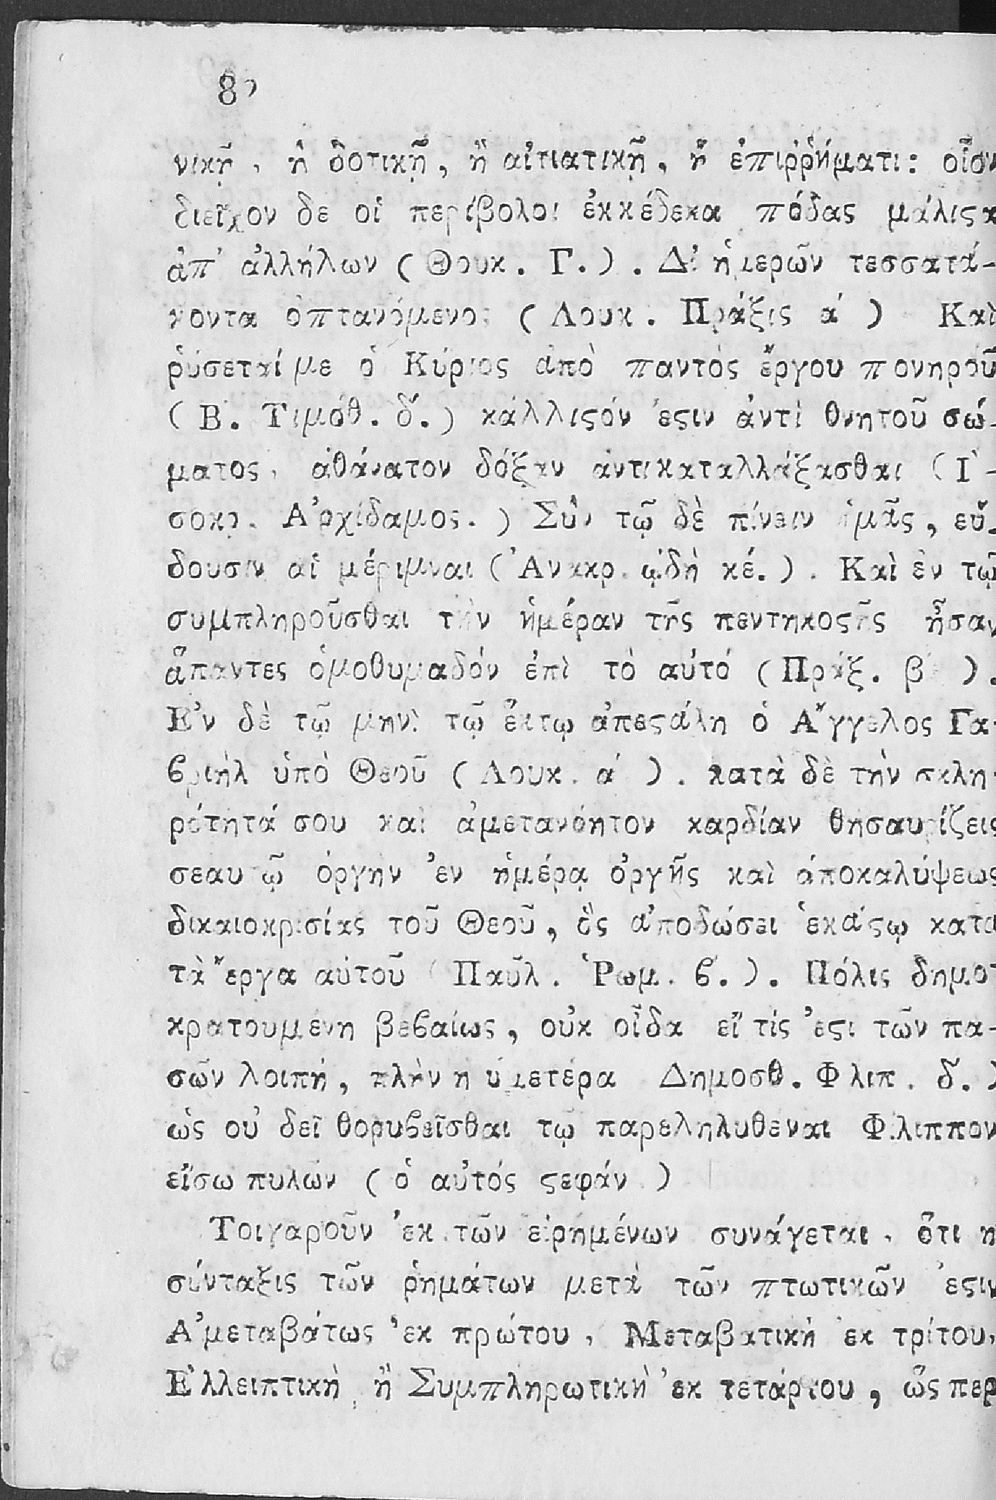 8
νικῇ, ἡ δοτικῇ, ἢ αἰτιατικῇ, ἢ ἐπιῤῥήματι: οἷον
διεῖχον δε οἱ περίβολοι ἑκκέδεκα πόδας μάλιςα
ἀπ' ἀλλήλων (Θουκ. Γ.). Δἰ ἡμερῶν τεσσατά-
κοντα ὀπτανόμενος (Λουκ. Πράξις α') Καὶ
ῥύσεταί με ὁ Κύριος ἀπὸ παντὸς ἔργου πονηροῦ
(Β. Τιμόθ. δ'.) κάλλιςόν ἐςιν ἀντὶ θνητοῦ σώ-
ματος, ἀθάνατον δόξαν ἀντικαταλλάξασθαι (Ἰ-
σοκρ. Ἀρχίδαμος.) Σὺν τῷ δὲ πίνειν ἡμᾶς, εὕ-
δουσιν αἱ μέριμναι (Ἀνακρ. ᾠδὴ κέ.). Καὶ ἐν τῷ
συμπληροῦσθαι τὴν ἡμέραν τῆς πεντηκοςῆς ἦσαν
ἅπαντες ὁμοθυμαδόν ἐπὶ τὸ αὐτό (Πράξ. β').
Ἐν δὲ τῷ μηνὶ τῷ ἕκτῳ ἀπεςάλη ὁ Ἄγγελος Γα-
βριὴλ ὑπὸ Θεοῦ (Λουκ. α'). κατὰ δὲ τὴν σκλη-
ρότητά σου καὶ ἀμετανόητον καρδίαν θησαυρίζεις
σεαυτῷ ὀργὴν ἐν ἡμέρᾳ ὀργῆς καὶ ἀποκαλύψεως
δικαιοκρισίας τοῦ Θεοῦ, ὃς ἀποδώσει ἑκάςῳ κατα
τὰ ἔργα αὐτοῦ (Παῦλ. Ῥωμ. β.). Πόλις δημο-
κρατουμένη βεβαίως, οὐκ οἶδα εἴ τίς ἐςι τῶν πα-
σῶν λοιπή, πλὴν η ὑμετέρα Δημοσθ. Φλιπ. δ'.)
ὡς οὐ δεῖ θορυβεῖσθαι τῷ παρεληλυθέναι Φίλιππον
εἴσω πυλῶν (ὁ αὐτός ςεφάν)
Τοιγαροῦν ἐκ τῶν εἰρημένων συνάγεται, ὅτι η
σύνταξις τῶν ῥημάτων μετὰ τῶν πτωτικῶν ἐςιν
Ἀμεταβάτως ἐκ πρώτου, Μεταβατική ἐκ τρίτου,
Ἐλλειπτικὴ ἢ Συμπληρωτικὴ ἐκ τετάρτου, ὥς περ